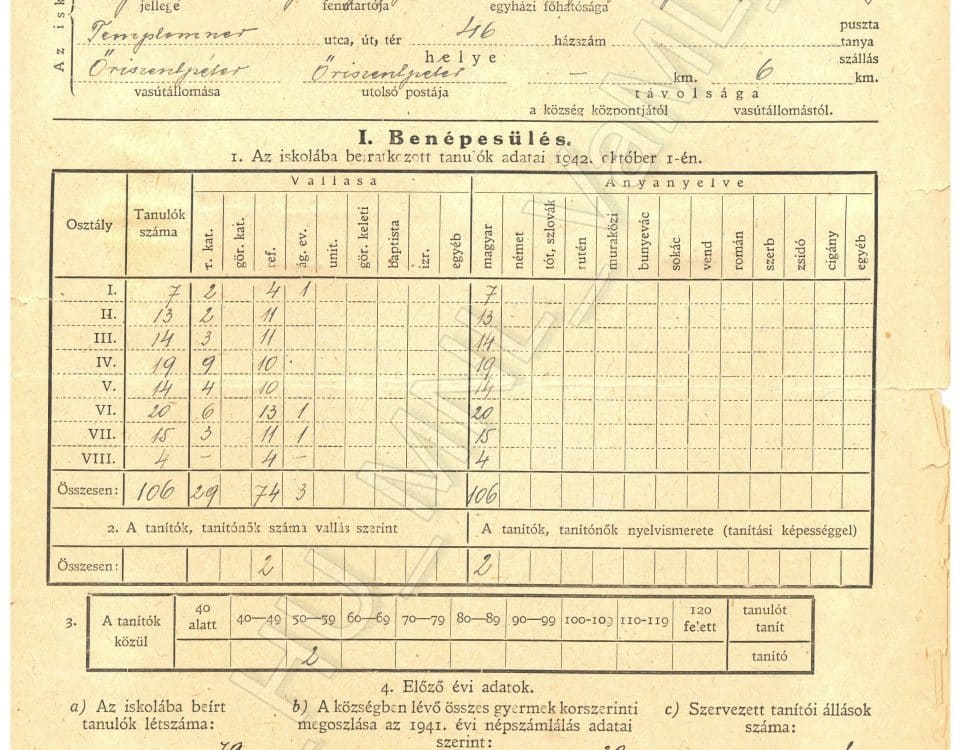 jellege fenntartója egyházi főhatósága
Templomner utca, út, tér 46 házszám puszta
tanya
szállás
Az isk
helye
Őriszentpéter Őriszentpéter – km. 6 km.
vasútállomása utolsó postája távolsága
a község központjától vasútállomástól.
I. Benépesülés.
1. Az iskolába beiratkozott tanulók adatai 1942. október 1-én.
Osztály Tanulók száma Vallása Anyanyelve
r. kat. gör. kat. ref. ág. ev. unit. gör. keleti baptista izr. egyéb magyar német tót, szlovák rutén muraközi bunyevác sokác vend román szerb zsidó cigány egyéb
I. 7 2 4 1 7
II. 13 2 11 13
III. 14 3 11 14
IV. 19 9 10 19
V. 14 4 10 14
VI. 20 6 13 1 20
VII. 15 3 11 1 15
VIII. 4 – 4 – 4
Összesen: 106 29 74 3 106
2. A tanítók, tanítónők száma vallás szerint A tanítók, tanítónők nyelvismerete (tanítási képességgel)
Összesen: 2 2
3. A tanítók közül 40 alatt 40—49 50—59 60—69 70—79 80—89 90—99 100-109 110-119 120 felett tanulót tanít
2 tanító
4. Előző évi adatok.
a) Az iskolába beírt b) A községben lévő összes gyermek korszerinti c) Szervezett tanítói állások
tanulók létszáma: megoszlása az 1941. évi népszámlálás adatai száma:
szerint:
HU_MNL_VaML